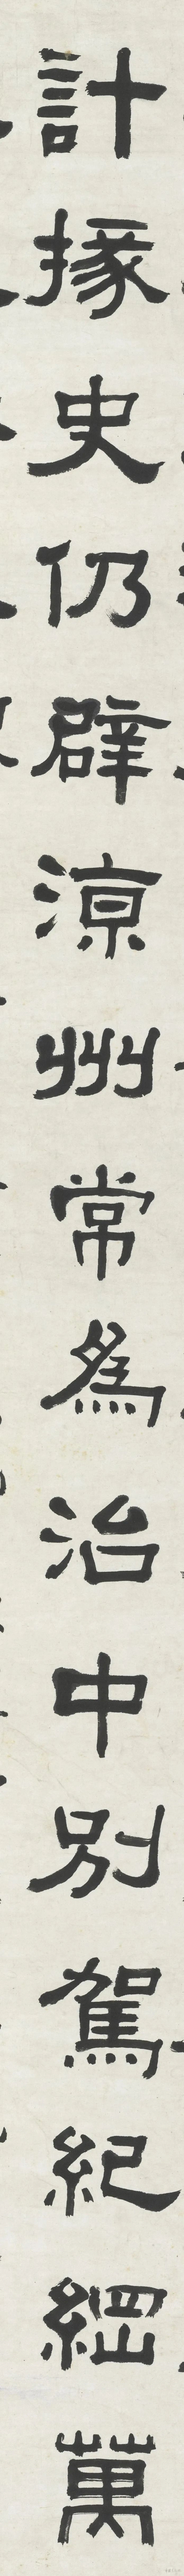 計掾史仍辟涼州常為治中別駕紀綱萬